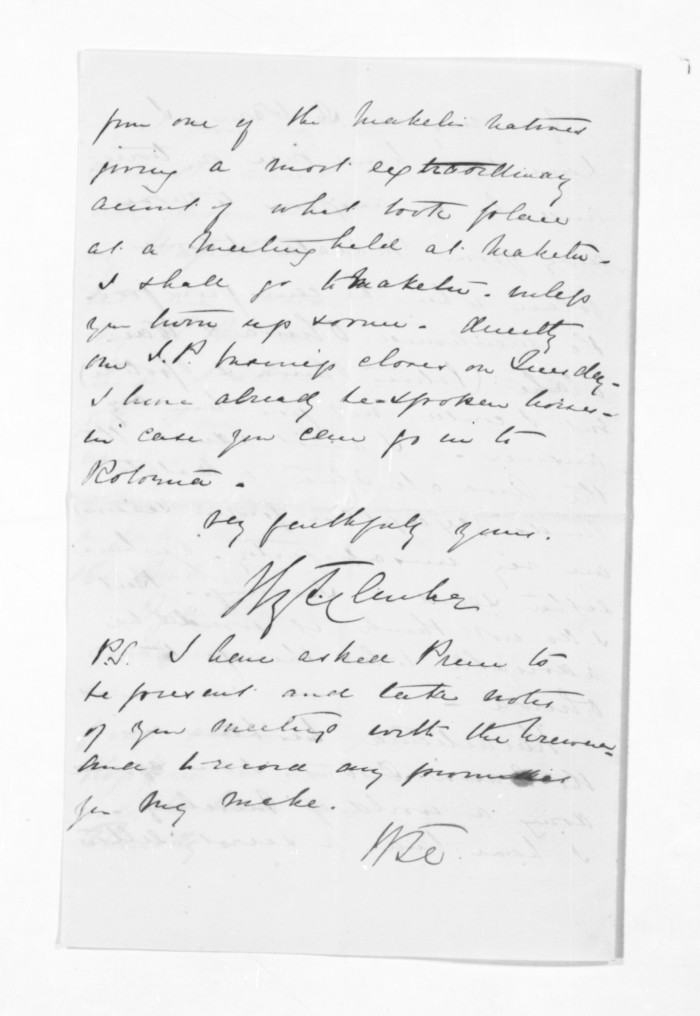 from one of the Maketu natives
giving a most extraordinary
account of what took place
at a Meeting held at Maketu -
I shall go to Maketu - unless
you turn up sooner - directly
our I.P. business closes on Tuesday -
I have already be-spoken horses -
in case you can go in to
Rotorua -
Very faithfully yours.
H. T. Clarke
P.S. I have asked Preece to
be present and take notes
of your meetings with the Urewera -
and to record any promises
you may make.
HTC